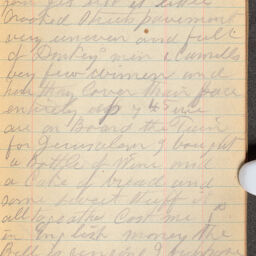 crooked thick pavement
very uneven and full
of Donkeys men & camells
very few women and
how they Cover their face
entirely up
are on Board the Train
for Jerusalem I bought
a Bottle of Wine and
a Cake of bread and
some sweet stuff it
all together Cost me 1/-
in English money the